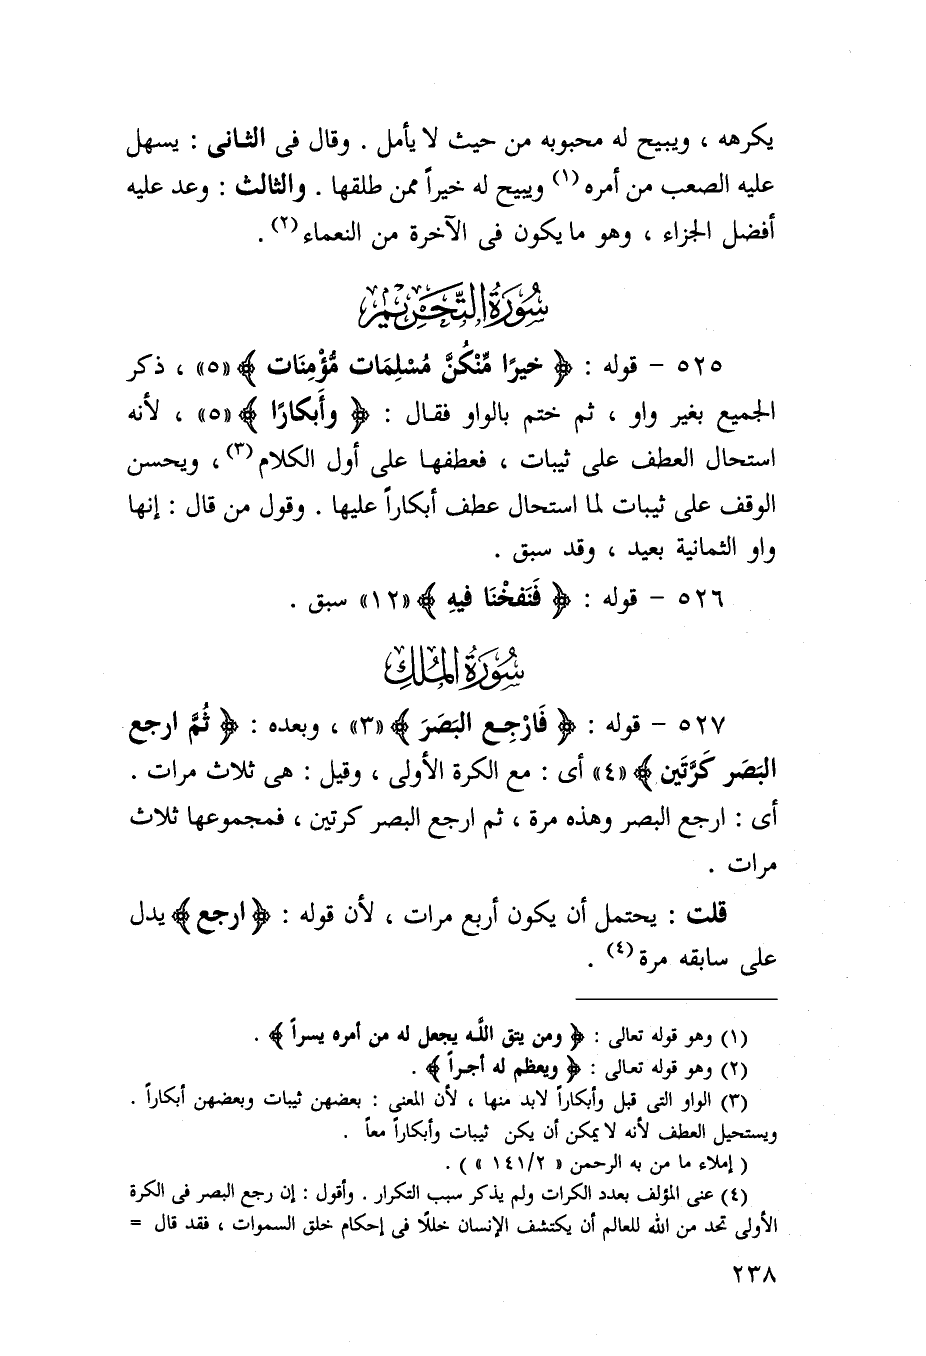 يكرهه ، ويبيح له محبوبه من حيث لا يأمل . وقال فى الثانى : يسهل
عليه الصعب من أمره(١) ويبيح له خيراً ممن طلقها . والثالث : وعد عليه
أفضل الجزاء ، وهو ما يكون فى الآخرة من النعماء(٢) .
سُورَةُ التَّحْرِيمِ
٥٢٥ – قوله : ﴿ خيرًا مِّنْكُنَّ مُسْلِمَات مُّؤْمِنَات ﴾ «٥» ، ذكر
الجميع بغير واو ، ثم ختم بالواو فقال : ﴿ وأَبكارًا ﴾ «٥» ، لأنه
استحال العطف على ثيبات ، فعطفها على أول الكلام(٣) ، ويحسن
الوقف على ثيبات لما استحال عطف أبكاراً عليها . وقول من قال : إنها
واو الثمانية بعيد ، وقد سبق .
٥٢٦ – قوله : ﴿ فَنَفخْنَا فيهِ ﴾ «١٢» سبق .
سُورَةُ المُلكِ
٥٢٧ – قوله : ﴿ فَارْجِعِ البَصَرَ ﴾ «٣» ، وبعده : ﴿ ثُمَّ ارجع
البَصَر كَرَّتَين ﴾ «٤» أى : مع الكرة الأولى ، وقيل : هى ثلاث مرات .
أى : ارجع البصر وهذه مرة ، ثم ارجع البصر كرتين ، فمجموعها ثلاث
مرات .
قلت : يحتمل أن يكون أربع مرات ، لأن قوله : ﴿ ارجع ﴾ يدل
على سابقه مرة(٤) .
(١) وهو قوله تعالى : ﴿ ومن يتق اللَّه يجعل له من أمره يسراً ﴾ .
(٢) وهو قوله تعالى : ﴿ ويعظم له أجراً ﴾ .
(٣) الواو التى قبل وأبكاراً لابد منها ، لأن المعنى : بعضهن ثيبات وبعضهن أبكاراً .
ويستحيل العطف لأنه لا يمكن أن يكن ثيبات وأبكاراً معاً .
( إملاء ما من به الرحمن « ١٤١/٢ » ) .
(٤) عنى المؤلف بعدد الكرات ولم يذكر سبب التكرار . وأقول : إن رجع البصر فى الكرة
الأولى تحد من الله للعالم أن يكتشف الإنسان خللًا فى إحكام خلق السموات ، فقد قال =
٢٣٨